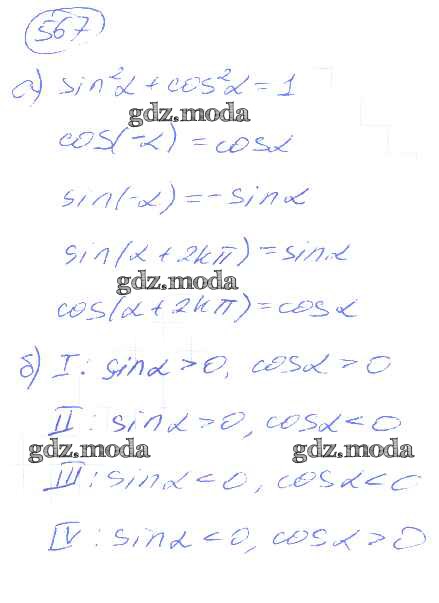 567
а) sin²α + cos²α = 1
gdz.moda
cos(-α) = cosα
sin(-α) = -sinα
sin(α + 2kπ) = sinα
gdz.moda
cos(α + 2kπ) = cosα
б) I: sinα > 0, cosα > 0
II: sinα > 0, cosα < 0
gdz.moda gdz.moda
III: sinα < 0, cosα < 0
IV: sinα < 0, cosα > 0